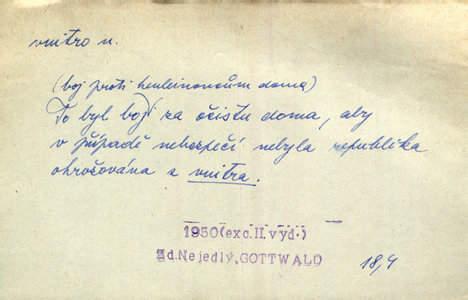 vnitro n.
(boj proti henleinovcům doma)
To byl boj za očistu doma, aby
v případě nebezpečí nebyla republika
ohrožována z vnitra.
1950(exc.II.vyd.)
Zd.Nejedlý,GOTTWALD
18,4